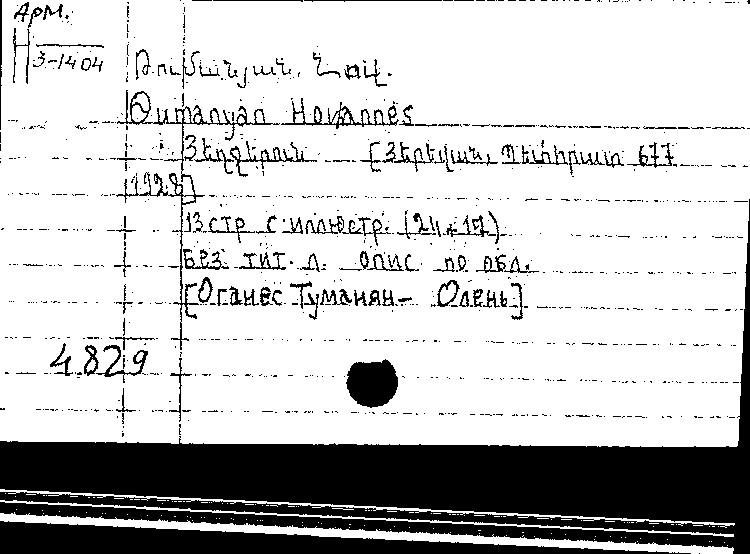 Арм.
3-1404
Թումանյան, Հով.
Թumanyan Hovannes
Յեղջերուն [Յերեվան, Պետհրատ 677
1928]
13 стр с иллюстр. (24×17)
Без тит. л. опис по обл.
[Оганес Туманян – Олень]
4829